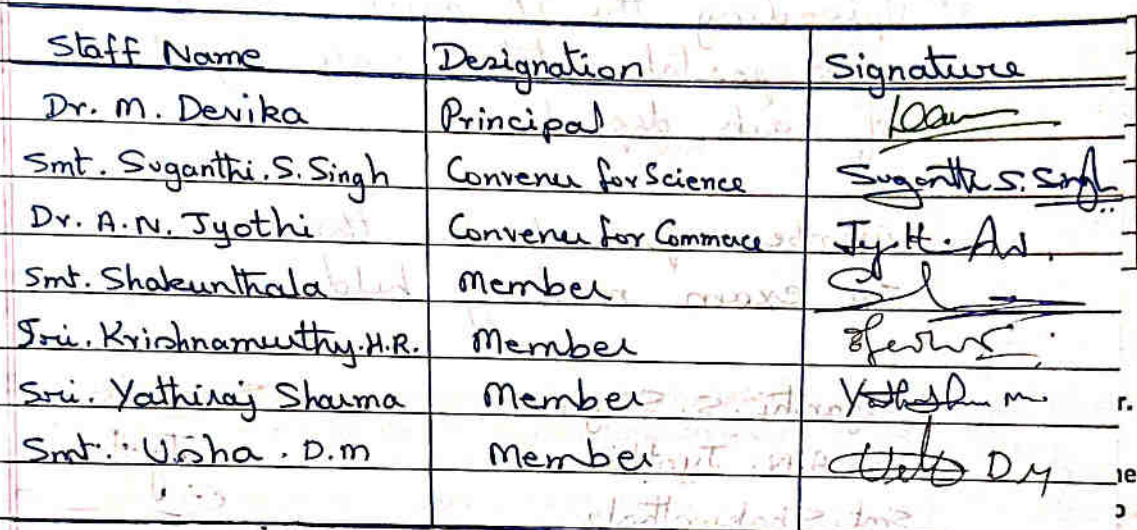 Staff Name Designation Signature
Dr. M. Devika Principal
Smt. Suganthi. S. Singh Convener for Science Suganthi S. Singh
Dr. A. N. Jyothi Convener for Commerce
Smt. Shakunthala Member
Sri. Krishnamurthy. H.R. Member
Sri. Yathiraj Sharma Member
Smt. Usha . D.m Member D M